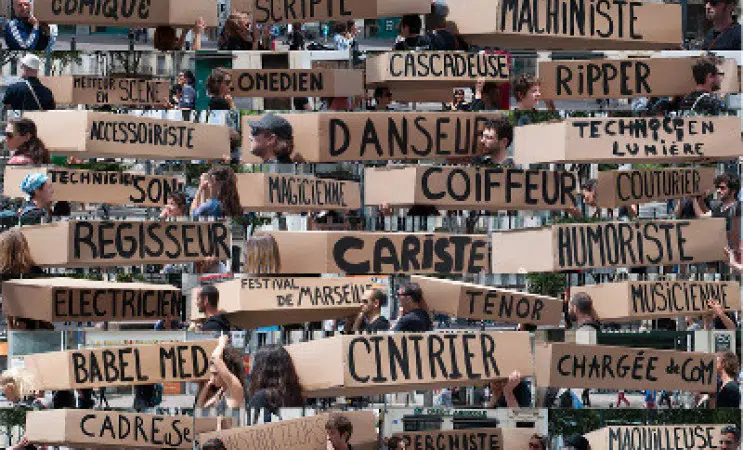 COMIQUE
SCRIPTE
MACHINISTE
METTEUR
EN SCÈNE
OMEDIEN
CASCADEUSE
RIPPER
ACCESSOIRISTE
DANSEUR
TECHNICIEN
LUMIÈRE
TECHNICIEN SON
MAGICIENNE
COIFFEUR
COUTURIER
RÉGISSEUR
CARISTE
HUMORISTE
ELECTRICIEN
FESTIVAL
DE MARSEILLE
TÉNOR
MUSICIENNE
BABEL MED
CINTRIER
CHARGÉE de COM
CADREUSE
PERCHISTE
MAQUILLEUSE